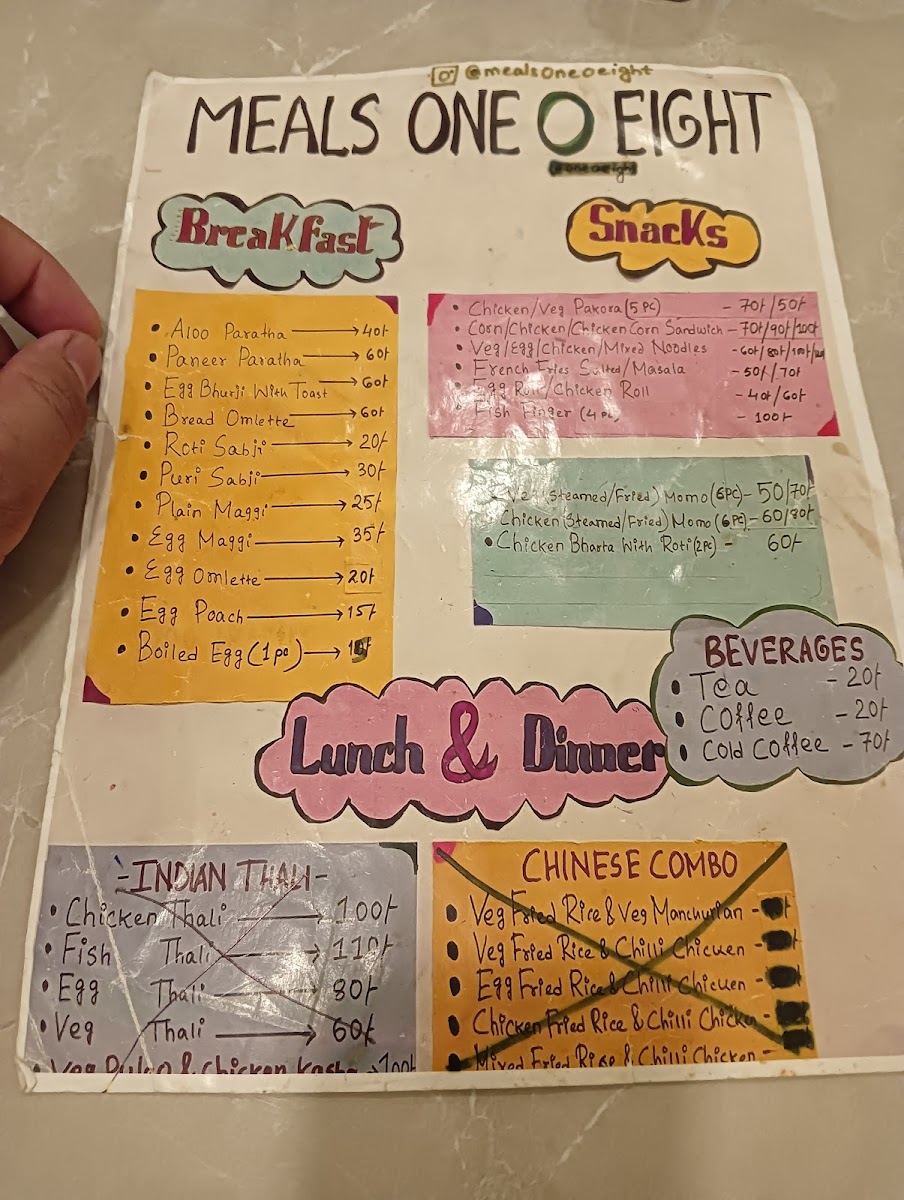 @mealsoneoeight
MEALS ONE O EIGHT
#oneoeight
Breakfast
• Aloo Paratha → 40/-
• Paneer Paratha → 60/-
• Egg Bhurji With Toast → 60/-
• Bread Omlette → 60/-
• Roti Sabji → 20/-
• Puri Sabji → 30/-
• Plain Maggi → 25/-
• Egg Maggi → 35/-
• Egg Omlette → 20/-
• Egg Poach → 15/-
• Boiled Egg (1pc) →
Snacks
• Chicken/Veg Pakora (5 PC) - 70/-/50/-
• Corn/Chicken/Chicken Corn Sandwich - 70/-/90/-/100/-
• Veg/Egg/Chicken/Mixed Noodles - 60/-/80/-/100/-
• French Fries Salted/Masala - 50/-/70/-
• Egg Roll/Chicken Roll - 40/-/60/-
• Fish Finger (4 PC) - 100/-
• Veg (Steamed/Fried) Momo (6PC) - 50/70/-
• Chicken (Steamed/Fried) Momo (6PC) - 60/80/-
• Chicken Bharta With Roti (2PC) - 60/-
BEVERAGES
• Tea - 20/-
• Coffee - 20/-
• Cold Coffee - 70/-
Lunch & Dinner
-INDIAN THALI-
• Chicken Thali → 100/-
• Fish Thali → 110/-
• Egg Thali → 80/-
• Veg Thali → 60/-
• Veg Pulao & Chicken Kasha → 100/-
CHINESE COMBO
• Veg Fried Rice & Veg Manchurian -
• Veg Fried Rice & Chilli Chicken -
• Egg Fried Rice & Chilli Chicken -
• Chicken Fried Rice & Chilli Chicken -
• Mixed Fried Rice & Chilli Chicken -